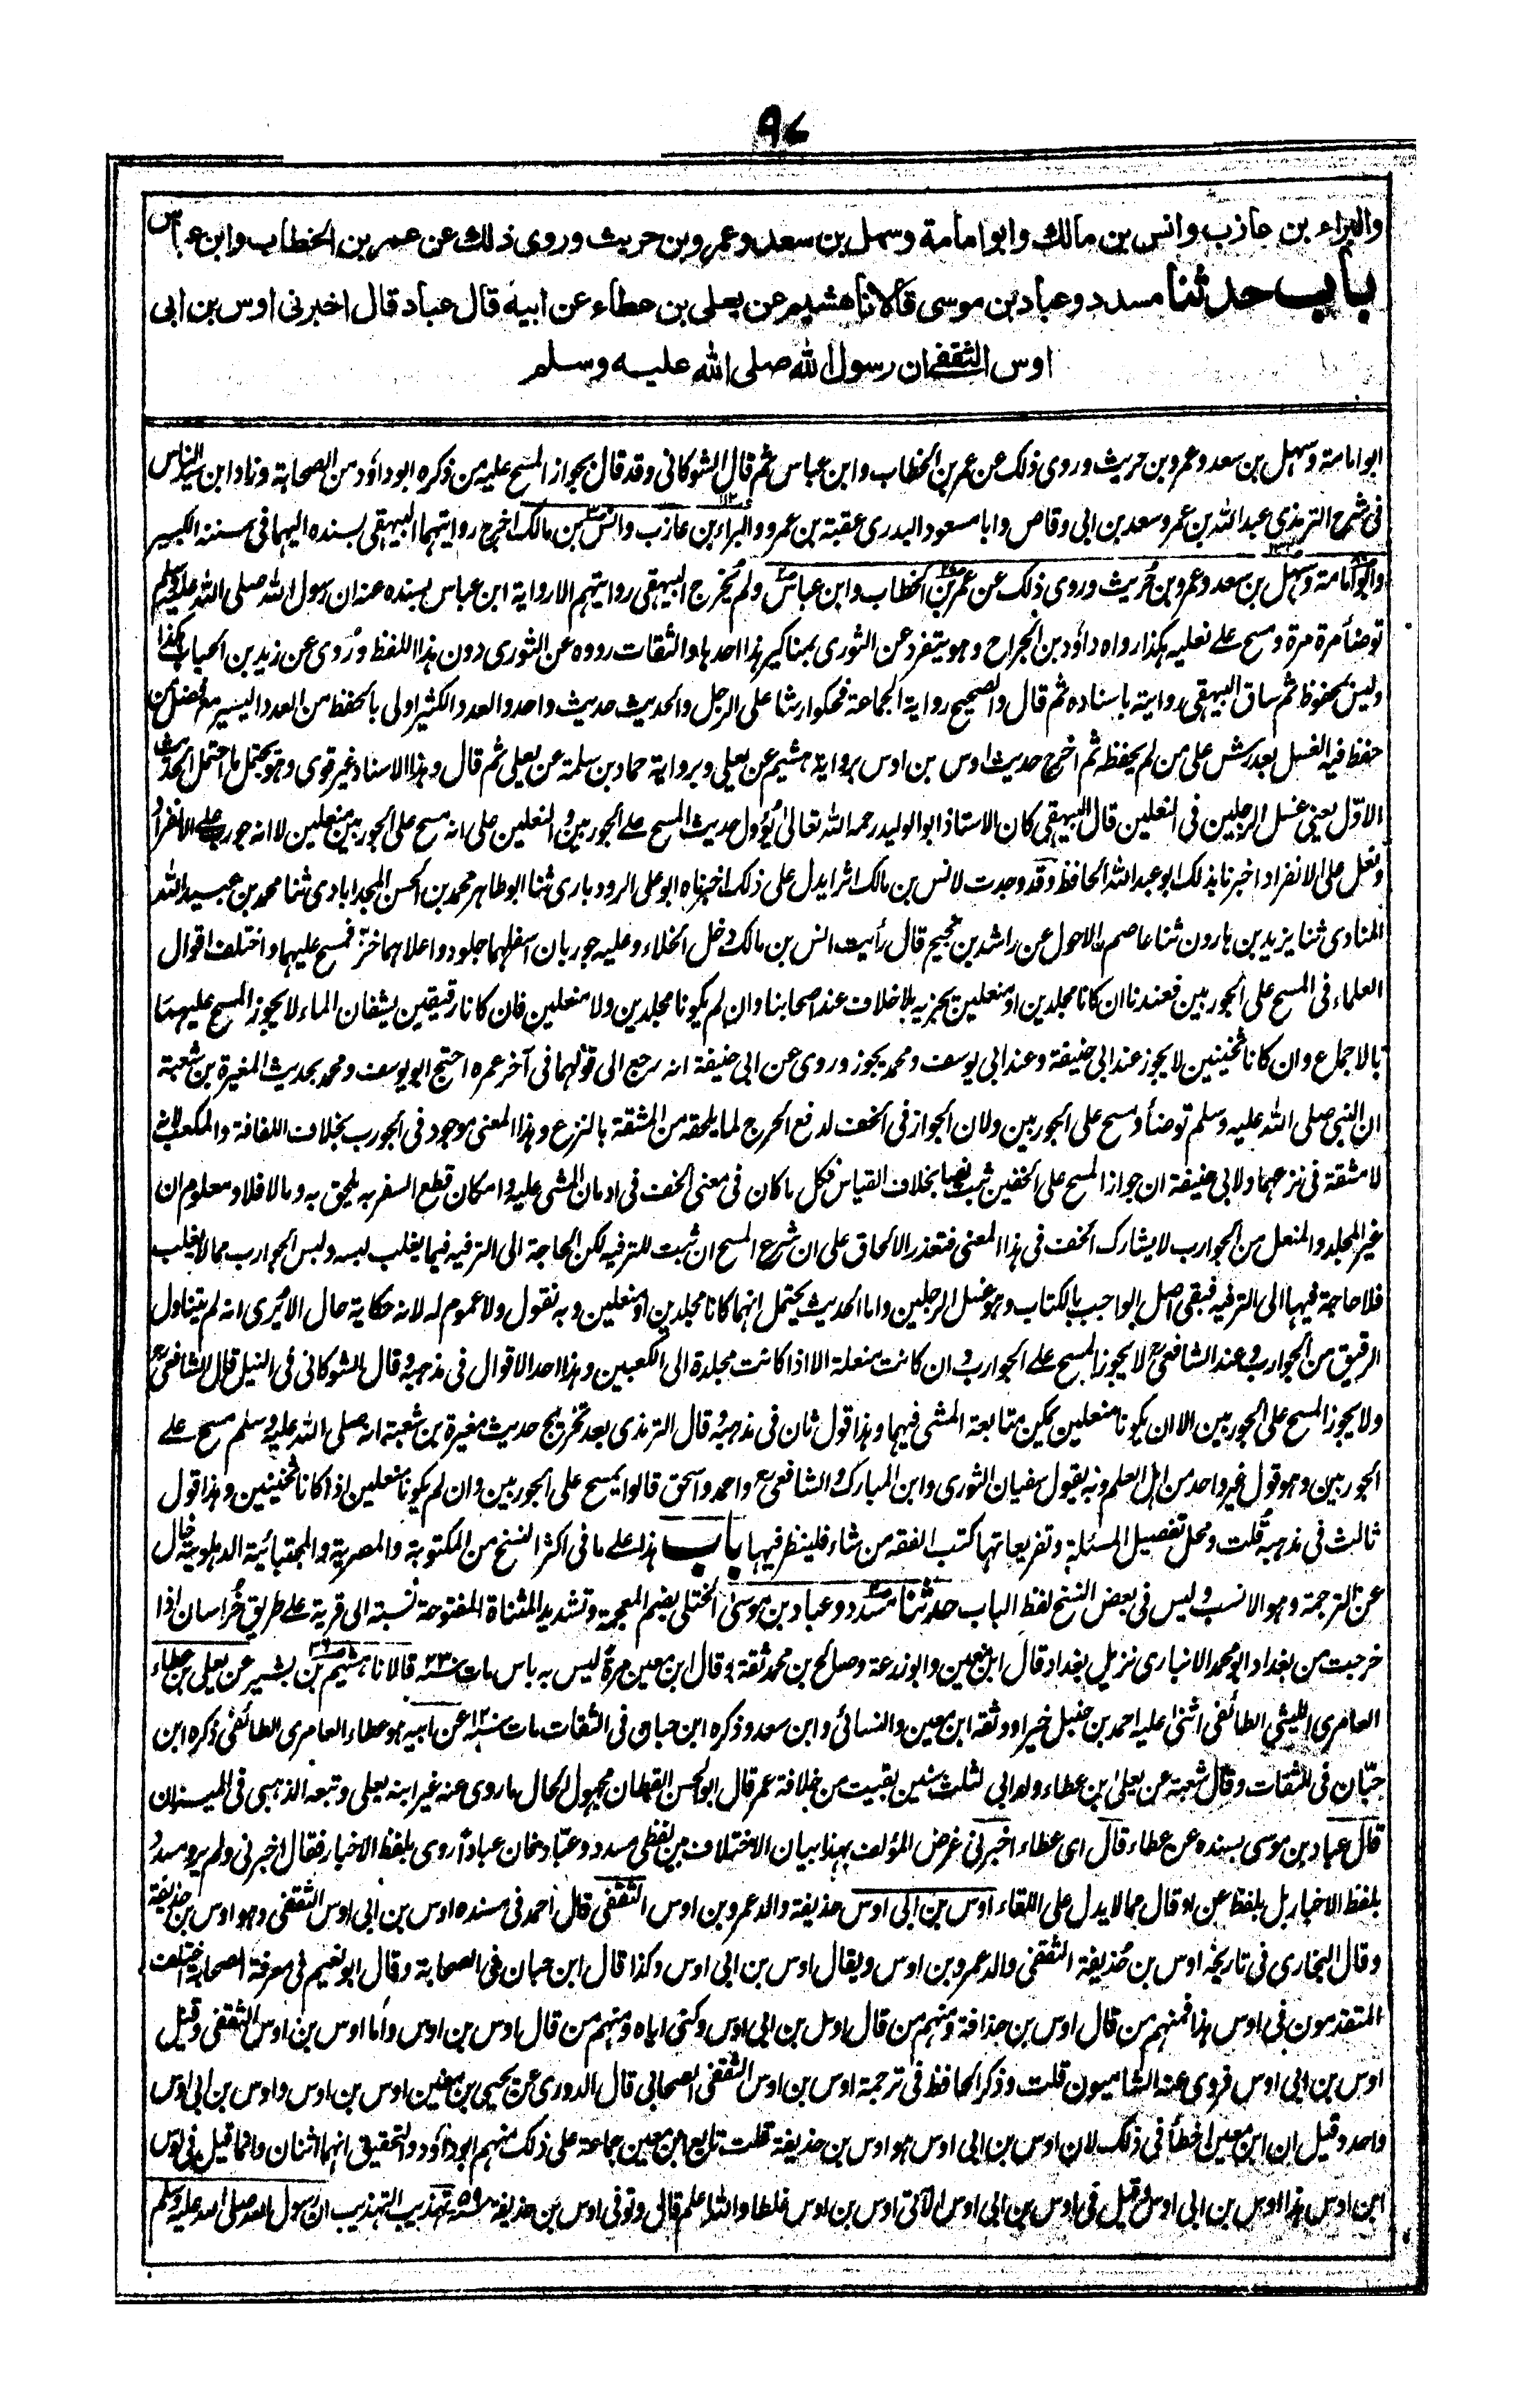 ٩٧
والبراء بن عازب وانس بن مالك وابوامامة وسهل بن سعد وعمرو بن حريث وروى ذلك عن عمر بن الخطاب وابن عباس
باب حدثنا مسدد وعباد بن موسى قالا نا هشيم عن يعلى بن عطاء عن ابيه قال عباد قال اخبرنى اوس بن ابى
اوس الثقفى ان رسول الله صلى الله عليه وسلم
ابوامامة وسهل بن سعد وعمرو بن حريث وروى ذلك عن عمر بن الخطاب وابن عباس ثم قال الشوكانى وقد قال بجواز المسح عليه من ذكره ابوداؤد من الصحابة وزاد ابن سيد الناس
فى شرح الترمذى عبد الله بن عمر وسعد بن ابى وقاص وابا مسعود البدرى عقبة بن عمرو والبراء بن عازب وانس بن مالك اخرج روايتهما البيهقى بسنده اليهما فى سننه الكبير
وابوامامة وسهل بن سعد وعمرو بن حُريث وروى ذلك عن عمر بن الخطاب وابن عباس ولم يُخرج البيهقى روايتهم الا رواية ابن عباس بسنده عنه ان رسول الله صلى الله عليه وسلم
توضأ مرة مرة ومسح على نعليه هكذا رواه داؤد بن الجراح وهو يتفرد عن الثورى بمناكير هذا احدها والثقات رووه عن الثورى دون هذا اللفظ ورُوى عن زيد بن الحباب هكذا
وليس بمحفوظ ثم ساق البيهقى روايته باسناده ثم قال والصحيح رواية الجماعة فحكوا رشا على الرجل والحديث حديث واحد والعدد الكثير اولى بالحفظ من العدد اليسير مع فضل من
حفظ فيه الغسل بعد رش على من لم يحفظه ثم اخرج حديث اوس بن اوس برواية هشيم عن يعلى وبرواية حماد بن سلمة عن يعلى ثم قال وهذا الاسناد غير قوى وهو يحتمل ما احتمل الحديث
الاوّل يعنى غسل الرجلين فى النعلين قال البيهقى كان الاستاذ ابوالوليد رحمه الله تعالى يُؤول حديث المسح على الجوربين والنعلين على انه مسح على الجوربين منعلين لا انه جورب على الانفراد
ونعل على الانفراد اخبرنا بذلك ابوعبدالله الحافظ وقد وجدت لانس بن مالك اثرا يدل على ذلك اخبرناه ابوعلى الروذبارى ثنا ابوطاهر محمد بن الحسن المجدابادى ثنا محمد بن عبيدالله
المنادى ثنا يزيد بن هارون ثنا عاصم الاحول عن راشد بن نجيح قال رأيت انس بن مالك دخل الخلاء وعليه جوربان اسفلهما جلود واعلاهما خزّ فمسح عليهما واختلف اقوال
العلماء فى المسح على الجوربين فعندنا ان كانا مجلدين او منعلين يجزيه بلا خلاف عند اصحابنا وان لم يكونا مجلدين ولا منعلين فان كانا رقيقين يشفان الماء لا يجوز المسح عليهما
بالاجماع وان كانا ثخينين لا يجوز عند ابى حنيفة وعند ابى يوسف ومحمد يجوز وروى عن ابى حنيفة انه رجع الى قولهما فى آخر عمره احتج ابويوسف ومحمد بحديث المغيرة بن شعبة
ان النبى صلى الله عليه وسلم توضأ ومسح على الجوربين ولان الجواز فى الخف لدفع الحرج لما يلحقه من المشقة بالنزع وهذا المعنى موجود فى الجورب بخلاف اللفافة والمكعب لانه
لا مشقة فى نزعهما ولابى حنيفة ان جواز المسح على الخفين ثبت نصا بخلاف القياس فكل ما كان فى معنى الخف فى ادمان المشى عليه وامكان قطع السفر به يلحق به وما لا فلا ومعلوم ان
غير المجلد والمنعل من الجوارب لا يشارك الخف فى هذا المعنى فتعذر الالحاق على ان شرع المسح ان ثبت للترفيه لكن الحاجة الى الترفيه فيما يغلب لبسه ولبس الجوارب مما لا يغلب
فلا حاجة فيها الى الترفيه فبقى اصل الواجب بالكتاب وهو غسل الرجلين واما الحديث يحتمل انهما كانا مجلدين او منعلين وبه نقول ولا عموم له لانه حكاية حال الا يُرى انه لم يتناول
الرقيق من الجوارب وعند الشافعى لا يجوز المسح على الجوارب وان كانت منعلة الا اذا كانت مجلدة الى الكعبين وهذا احد الاقوال فى مذهبه وقال الشوكانى فى النيل قال الشافعى
ولا يجوز المسح على الجوربين الا ان يكونا منعلين يمكن متابعة المشى فيهما وهذا قول ثان فى مذهبه وقال الترمذى بعد تخريج حديث مغيرة بن شعبة انه صلى الله عليه وسلم مسح على
الجوربين وهو قول غير واحد من اهل العلم وبه يقول سفيان الثورى وابن المبارك والشافعى واحمد واسحق قالوا يمسح على الجوربين وان لم يكونا منعلين اذا كانا ثخينين وهذا قول
ثالث فى مذهبه قلت ومحل تفصيل المسئلة وتفريعاتها كتب الفقه من شاء فلينظر فيها باب هذا على ما فى اكثر النسخ من المكتوبة والمصرية والمجتبائية الدهلوية خال
عن الترجمة وهو الانسب وليس فى بعض النسخ لفظ الباب حدثنا مسدد وعباد بن موسىٰ الختلى بضم المعجمة وتشديد المثناة المفتوحة نسبة الى قرية على طريق خُراسان اذا
خرجت من بغداد ابومحمد الانبارى نزيل بغداد قال ابن معين وابوزرعة وصالح بن محمد ثقة وقال ابن معين مرة ليس به باس مات سنة ٢٣ قالا نا هشيم بن بشير عن يعلى بن عطاء
العامرى الليثى الطائفى اثنى عليه احمد بن حنبل خيرا ووثقه ابن معين والنسائى وابن سعد وذكره ابن حبان فى الثقات مات سنة عن ابيه هو عطاء العامرى الطائفى ذكره ابن
حبّان فى الثقات وقال شعبة عن يعلى بن عطاء ولد ابى لثلث سنين بقيت من خلافة عمر قال ابوالحسن القطان مجهول الحال ما روى عنه غير ابنه يعلى وتبعه الذهبى فى الميزان
قال عباد بن موسى بسنده عن عطاء قال اى عطاء اخبرنى غرض المؤلف بهذا بيان الاختلاف بين لفظى مسدد وعبّاد فان عبادا روى بلفظ الاخبار فقال اخبرنى ولم يرو مسدد
بلفظ الاخبار بل بلفظ عن او قال مما لا يدل على اللقاء اوس بن ابى اوس حذيفة والد عمرو بن اوس الثقفى قال احمد فى مسنده اوس بن ابى اوس الثقفى وهو اوس بن حذيفة
وقال البخارى فى تاريخه اوس بن حُذيفة الثقفى والد عمرو بن اوس ويقال اوس بن ابى اوس وكذا قال ابن حبان فى الصحابة وقال ابونعيم فى معرفة الصحابة اختلف
المتقدمون فى اوس هذا فمنهم من قال اوس بن حذافة ومنهم من قال اوس بن ابى اوس وكنى اباه ومنهم من قال اوس بن اوس واما اوس بن اوس الثقفى وقيل
اوس بن ابى اوس فروى عنه الشاميون قلت وذكر الحافظ فى ترجمة اوس بن اوس الثقفى الصحابى قال الدورى عن يحيى بن معين اوس بن اوس واوس بن ابى اوس
واحد وقيل ان ابن معين اخطأ فى ذلك لان اوس بن ابى اوس هو اوس بن حذيفة قلت تابع ابن معين جماعة على ذلك منهم ابوداؤد والتحقيق انهما اثنان وانما قيل فى اوس
ابن اوس هذا اوس بن ابى اوس وقيل فى اوس بن ابى اوس الآتى اوس بن اوس غلطا والله اعلم قالى وتوفى اوس بن حذيفة سنة ٥٩ تهذيب التهذيب ان رسول الله صلى الله عليه وسلم